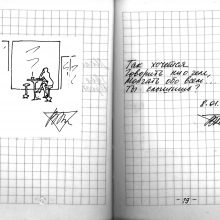 Так хочется
говорить ни о чем,
молчать обо всем...
Ты слышишь?
8.01.
- 19 -